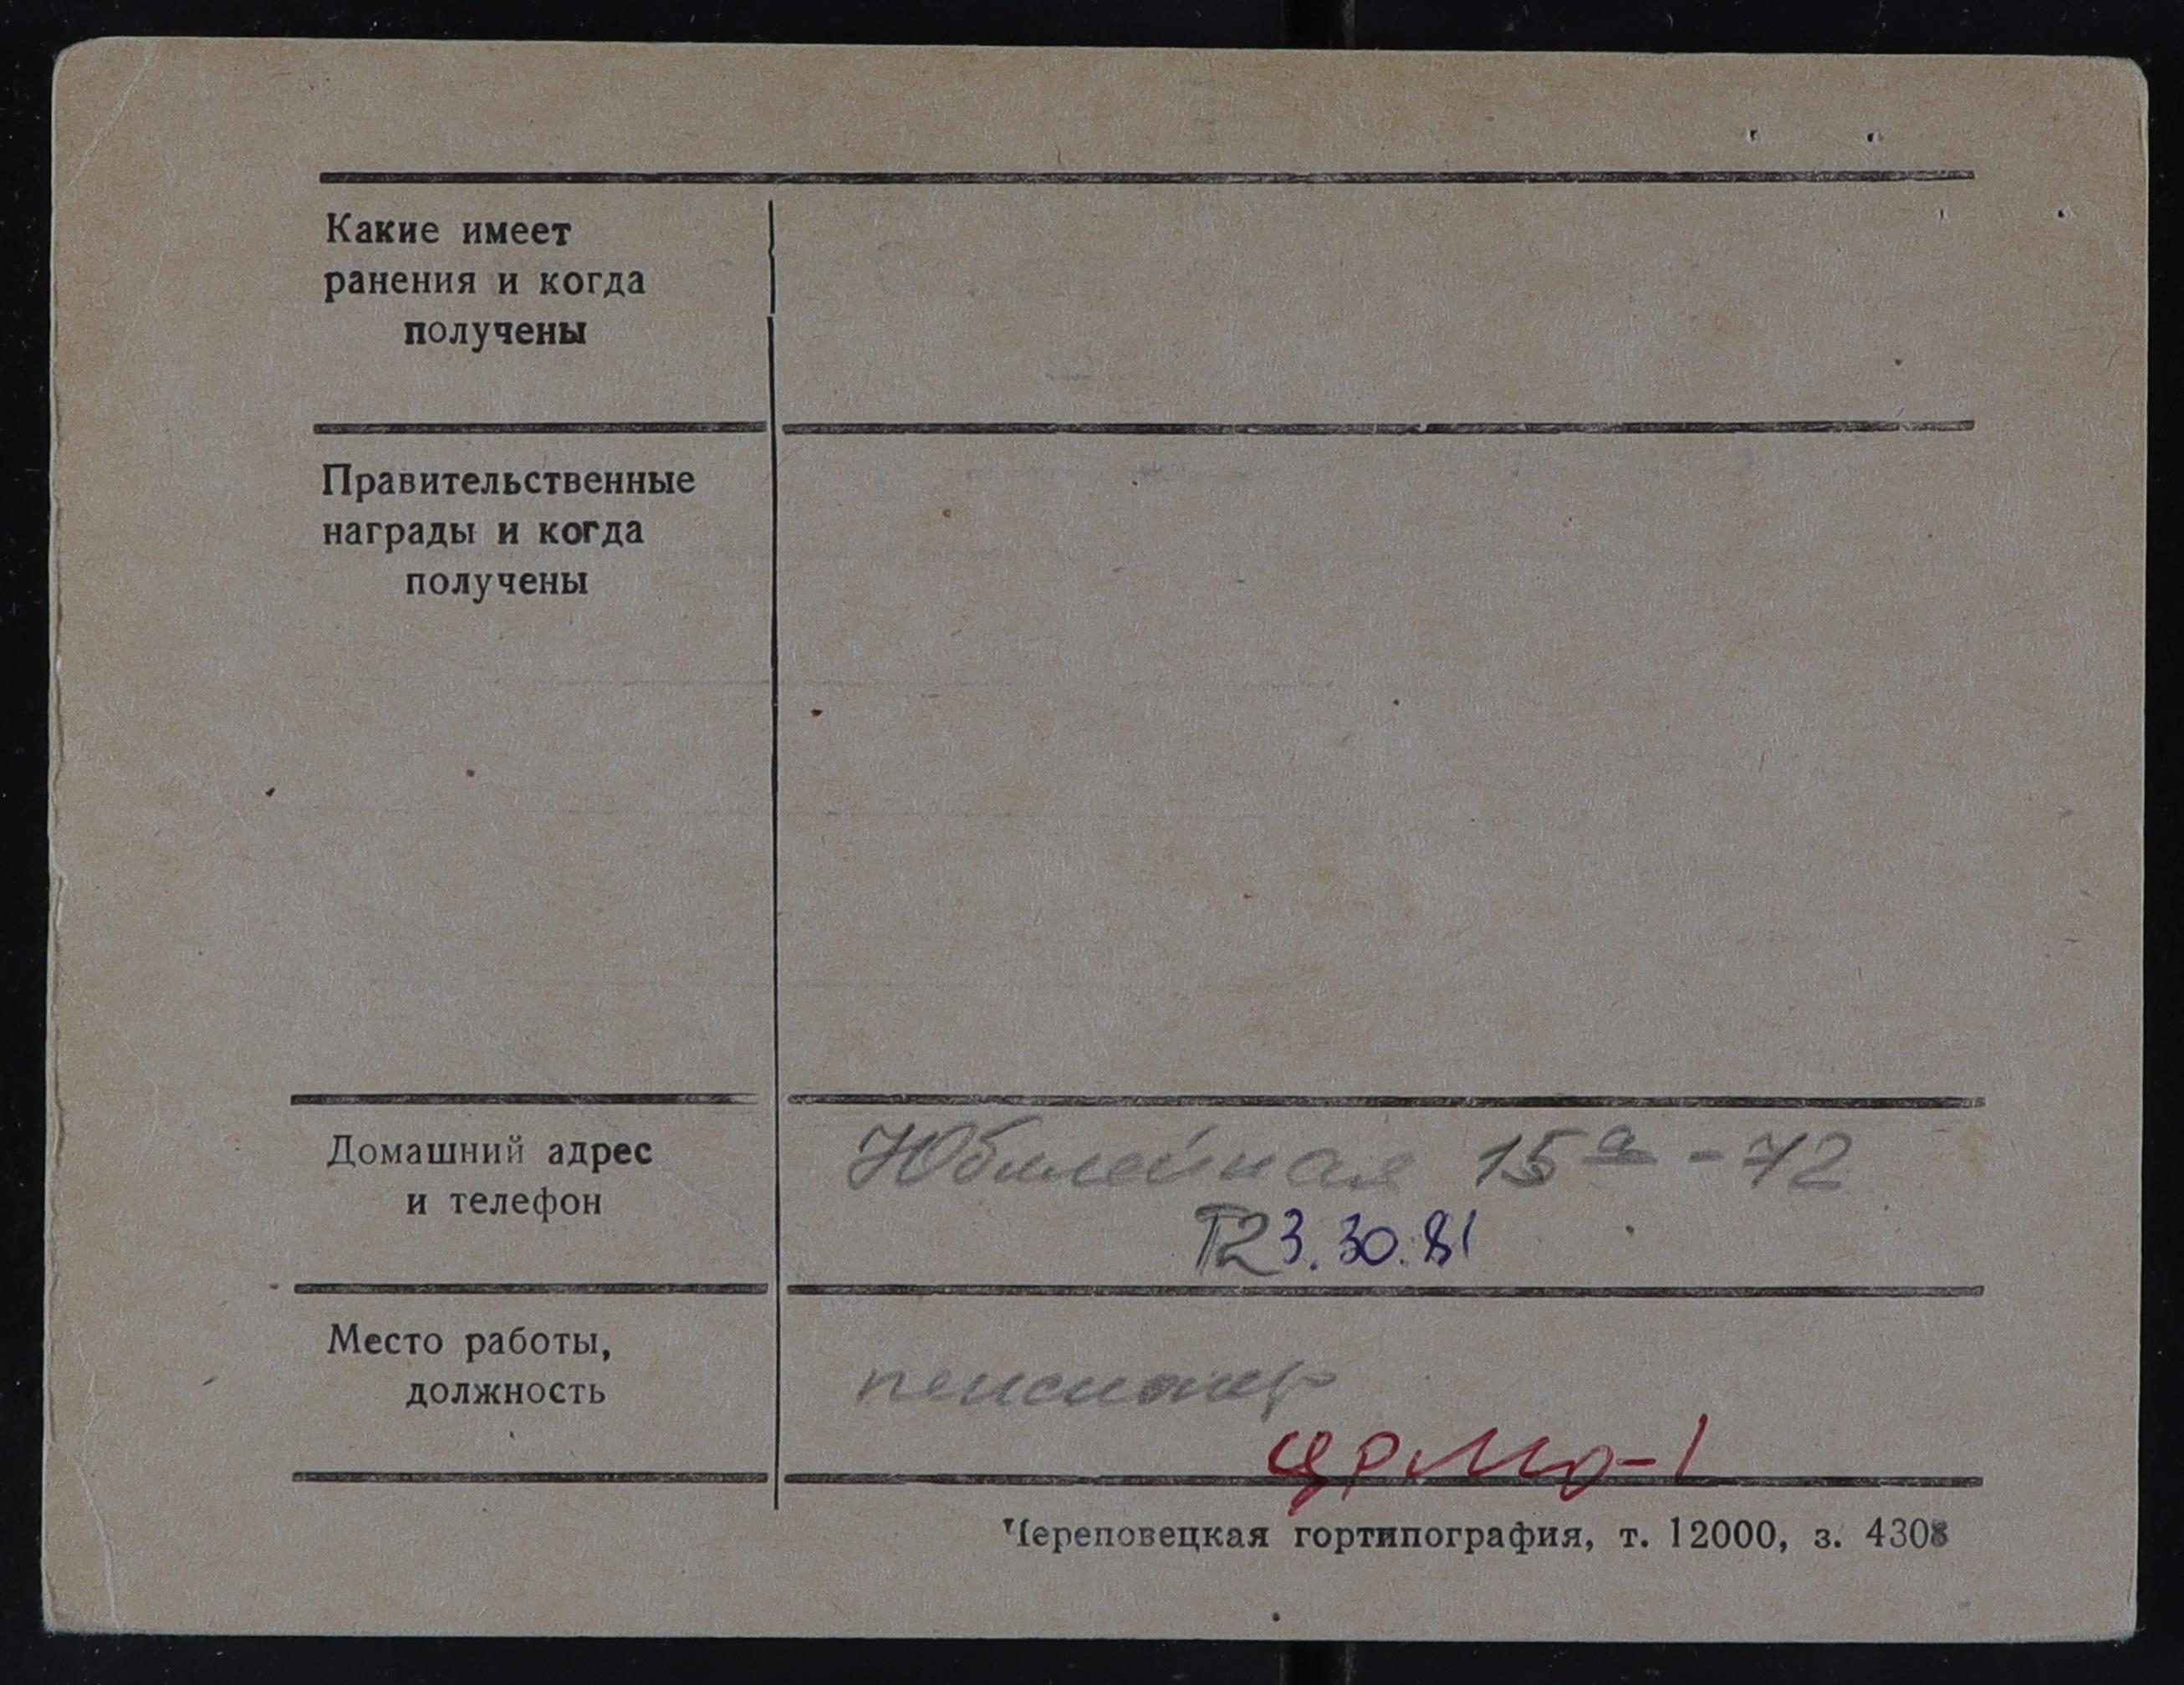 Какие имеет
ранения и когда
получены
Правительственные
награды и когда
получены
Домашний адрес
и телефон
Юбилейная 15а - 72
Т2 3.30.81
Место работы,
должность
пенсионер
ЦРМО-1
Череповецкая гортипография, т. 12000, з. 4308